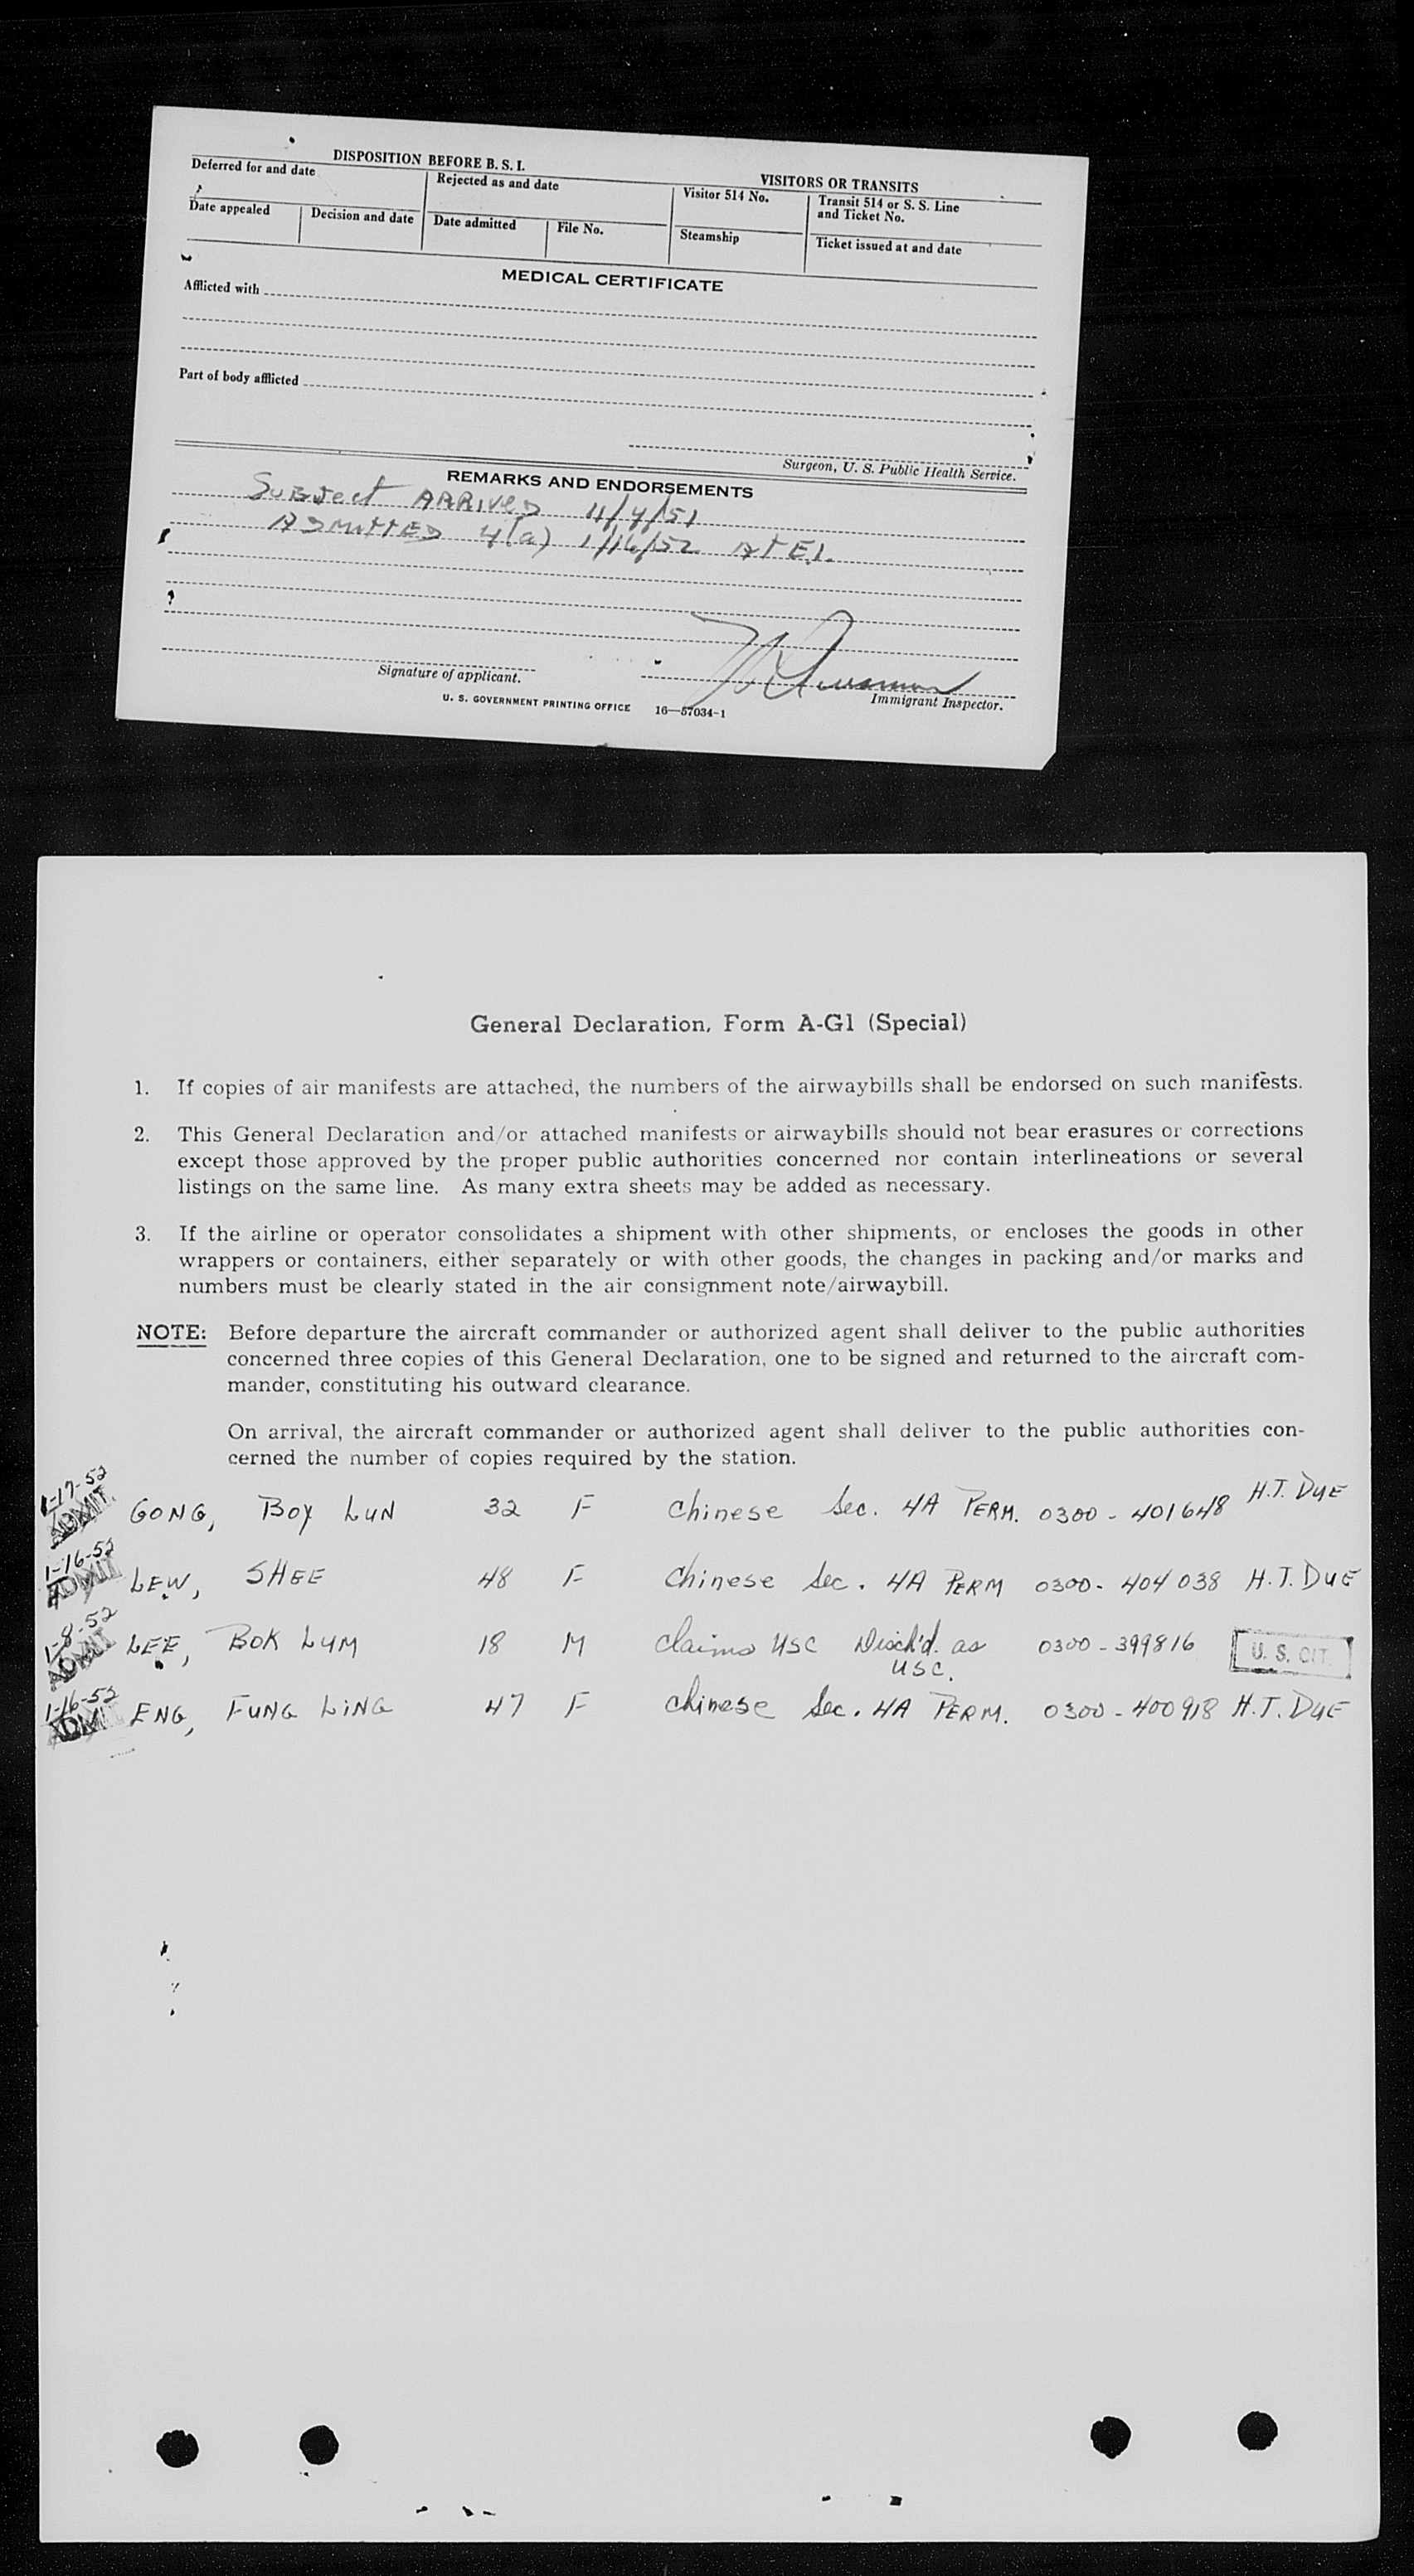 DISPOSITION BEFORE B. S. I.
VISITORS OR TRANSITS
Deferred for and date
Rejected as and date
Visitor 514 No.
Transit 514 or S. S. Line
and Ticket No.
Date appealed
Decision and date
Date admitted
File No.
Steamship
Ticket issued at and date
MEDICAL CERTIFICATE
Afflicted with
Part of body afflicted
Surgeon, U. S. Public Health Service.
REMARKS AND ENDORSEMENTS
Subject ARRIVED 11/4/51
ADMITTED 4(a) 1/16/52 At E.I.
Signature of applicant.
Immigrant Inspector.
U. S. GOVERNMENT PRINTING OFFICE 16—57034-1
General Declaration, Form A-G1 (Special)
1. If copies of air manifests are attached, the numbers of the airwaybills shall be endorsed on such manifests.
2. This General Declaration and/or attached manifests or airwaybills should not bear erasures or corrections
except those approved by the proper public authorities concerned nor contain interlineations or several
listings on the same line. As many extra sheets may be added as necessary.
3. If the airline or operator consolidates a shipment with other shipments, or encloses the goods in other
wrappers or containers, either separately or with other goods, the changes in packing and/or marks and
numbers must be clearly stated in the air consignment note/airwaybill.
NOTE: Before departure the aircraft commander or authorized agent shall deliver to the public authorities
concerned three copies of this General Declaration, one to be signed and returned to the aircraft com-
mander, constituting his outward clearance.
On arrival, the aircraft commander or authorized agent shall deliver to the public authorities con-
cerned the number of copies required by the station.
1-17-52 ADMIT GONG, BOY LUN 32 F Chinese Sec. 4A PERM. 0300-401648 H.T. DUE
1-16-52 ADMIT LEW, SHEE 48 F Chinese Sec. 4A PERM 0300-404038 H.T. DUE
1-8-52 ADMIT LEE, BOK LUM 18 M Claims USC Disch'd. as USC. 0300-399816 U. S. CIT.
1-16-52 ADMIT ENG, FUNG LING 47 F Chinese Sec. 4A PERM. 0300-400918 H.T. DUE